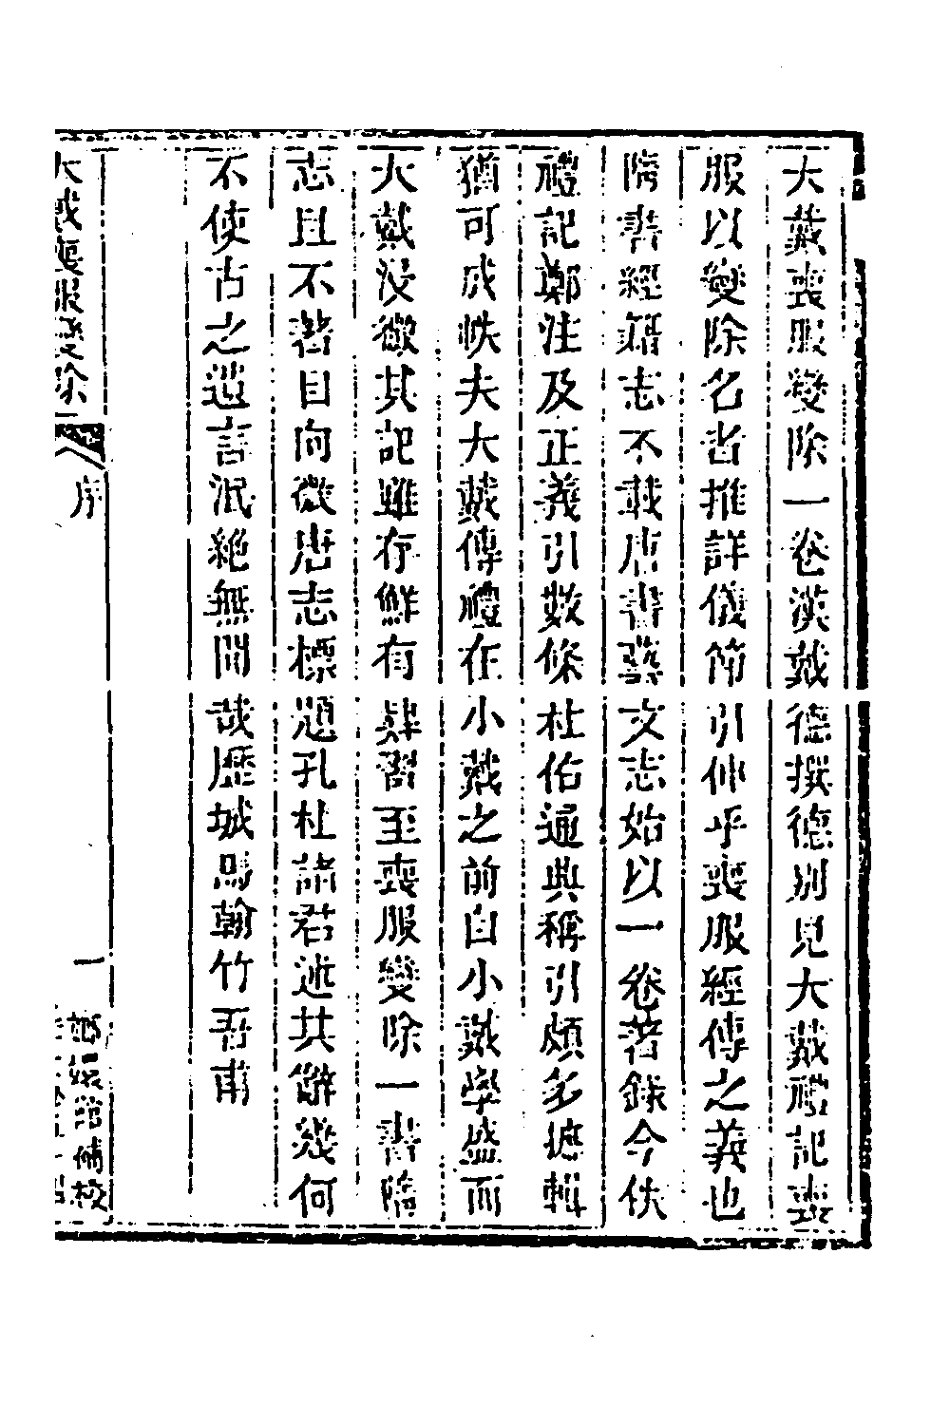 大戴喪服變除一卷漢戴德撰德別見大戴禮記喪
服以變除名者推詳儀節引伸乎喪服經傳之義也
隋書經籍志不載唐書藝文志始以一卷著錄今佚
禮記鄭注及正義引數條杜佑通典稱引頗多據輯
猶可成帙夫大戴傳禮在小戴之前自小戴學盛而
大戴浸微其記雖存鮮有肄習至喪服變除一書隋
志且不著目向微唐志標題孔杜諸君述其辭幾何
不使古之遺言泯絕無聞哉歷城馬翰竹吾甫
大戴喪服變除
序
一
嫏嬛館補校